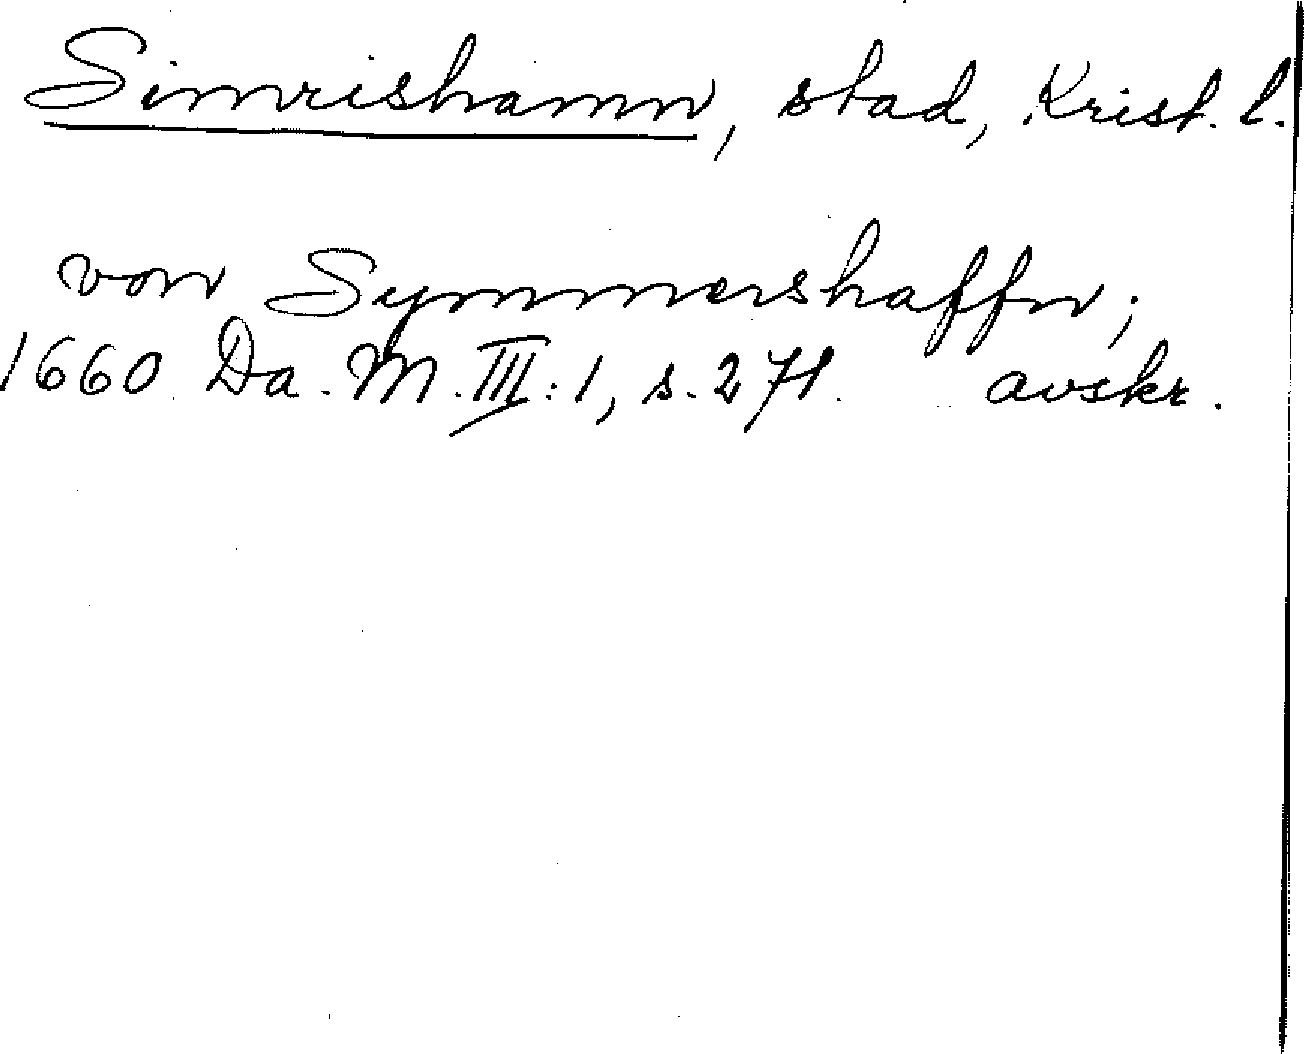 Simrishamn, stad, Krist. l.
von Symmershaffn;
1660 Da. M. III: 1, s. 271. avskr.